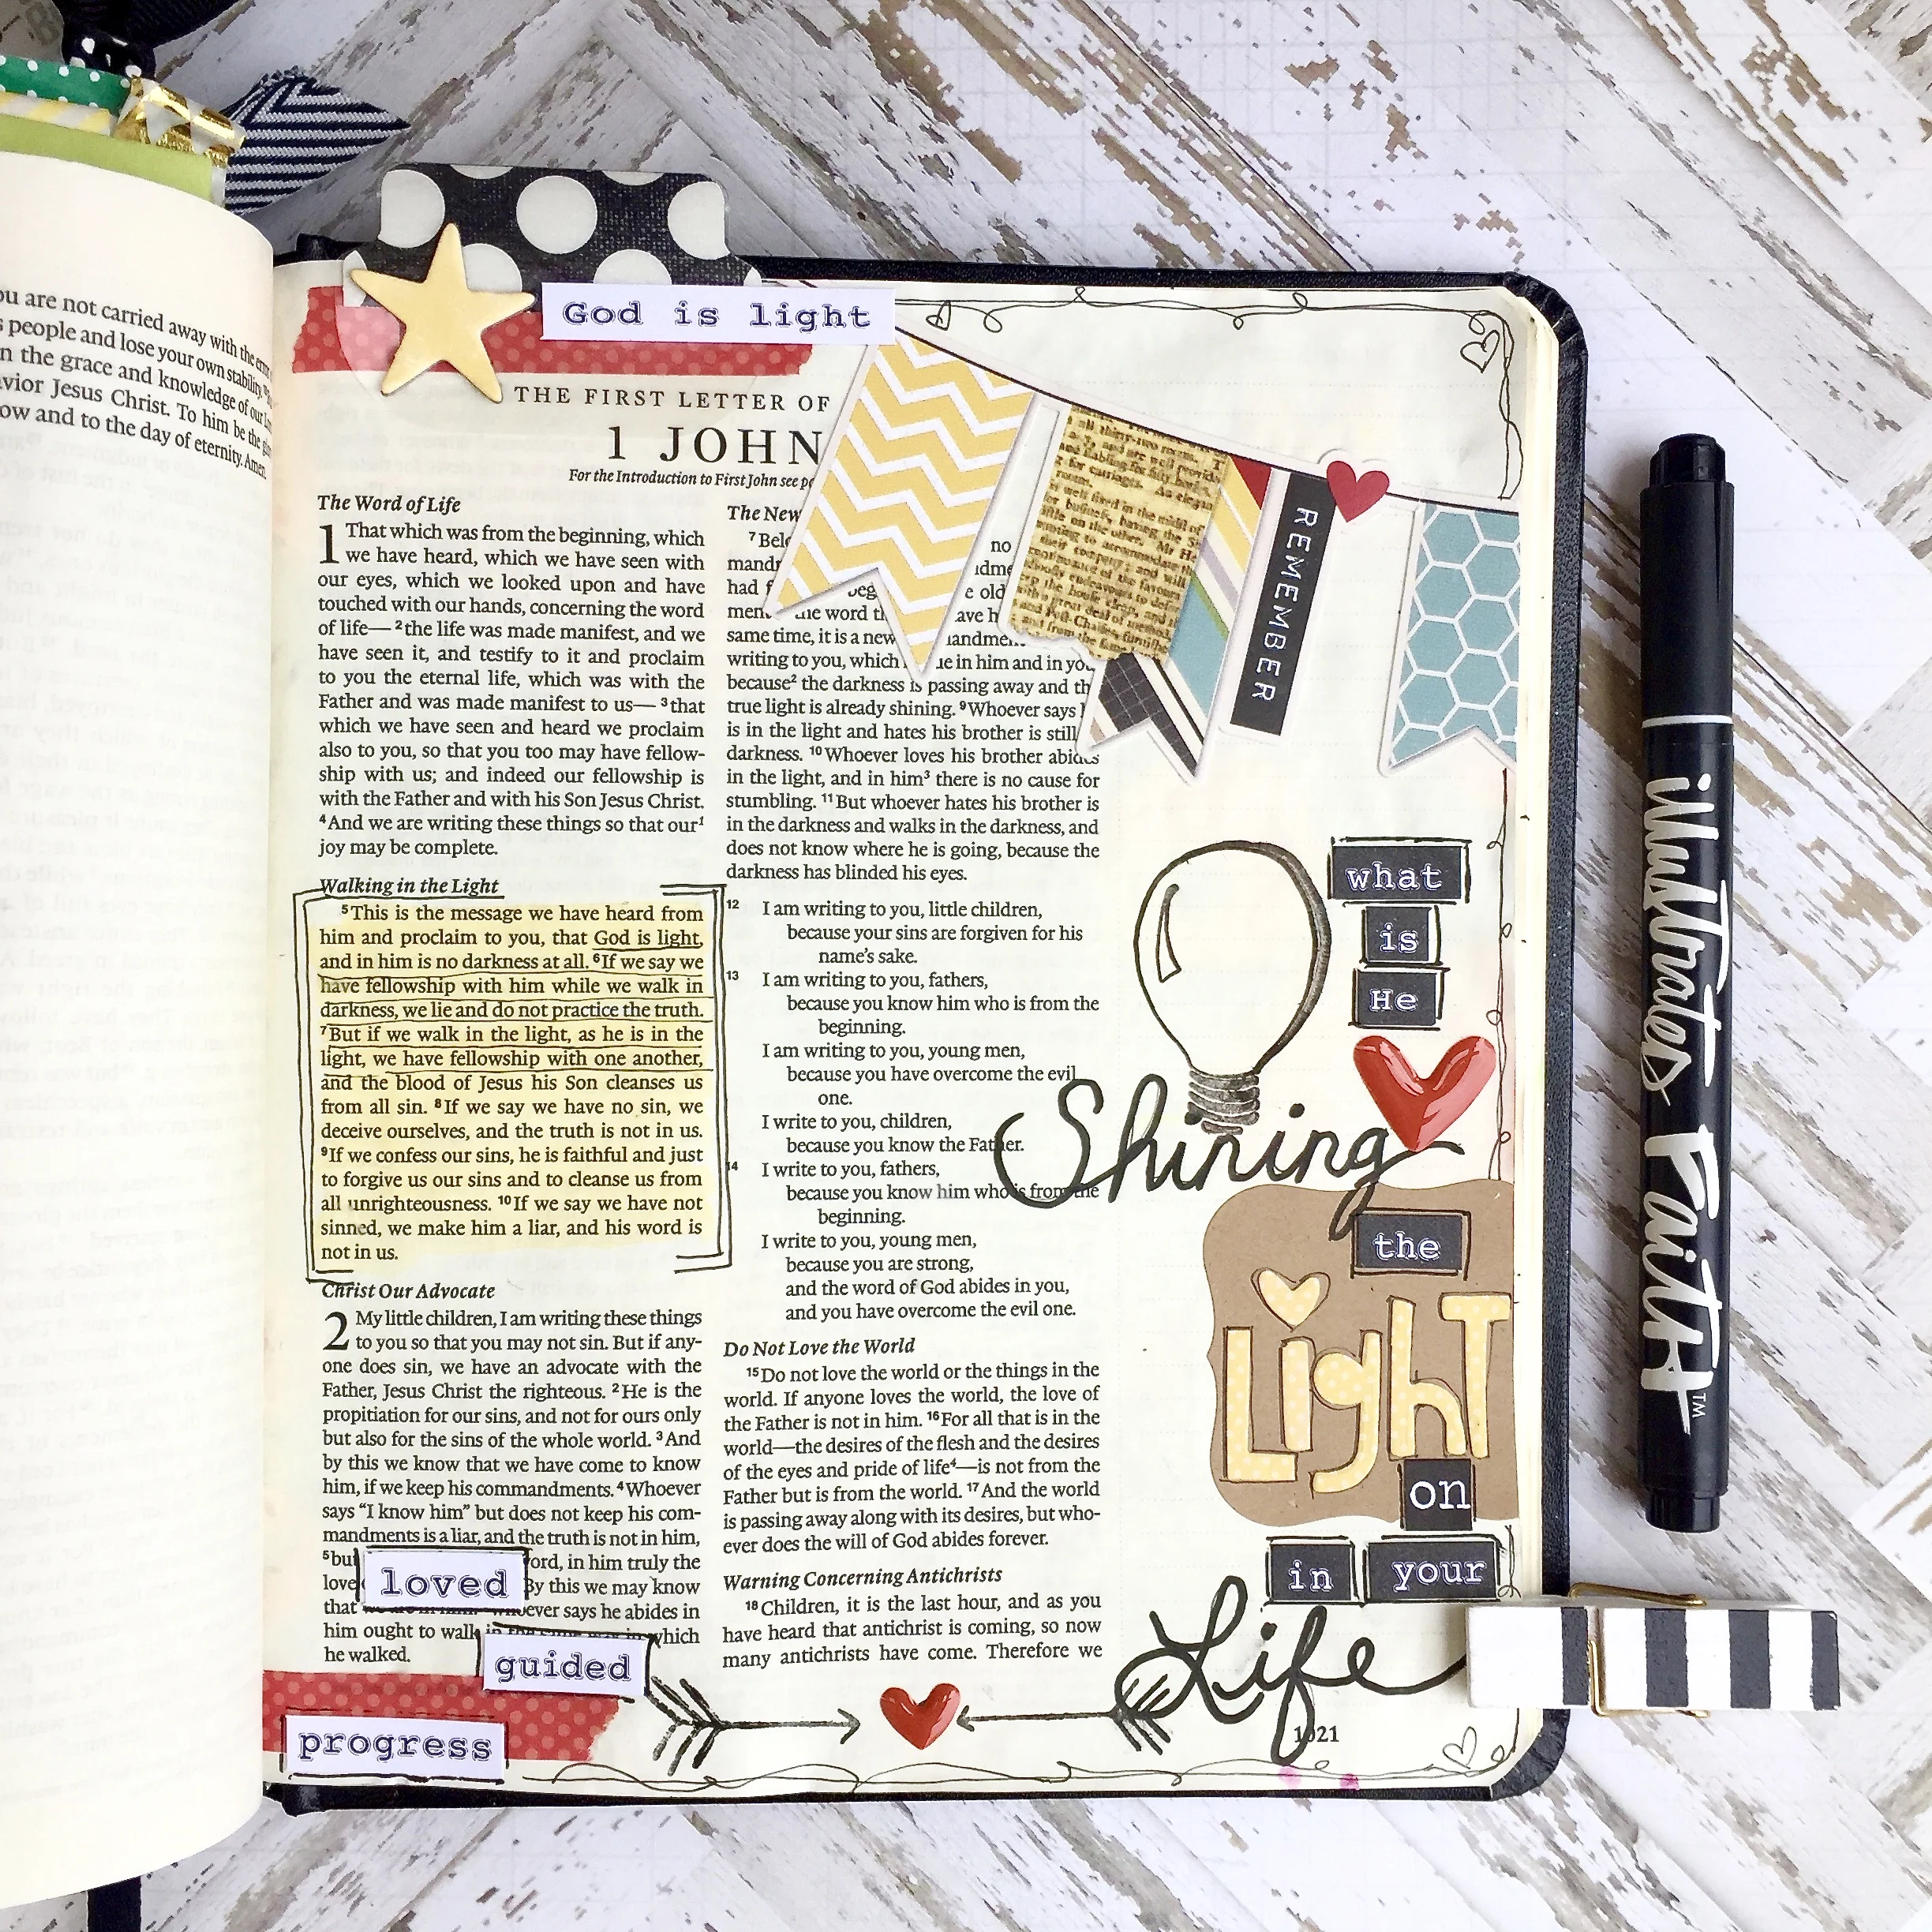 ou are not carried away with the
people and lose your own stability.
n the grace and knowledge of our
vior Jesus Christ. To him be the
ow and to the day of eternity. Amen.
God is light
THE FIRST LETTER OF
1 JOHN
For the Introduction to First John see
The Word of Life
1 That which was from the beginning, which
we have heard, which we have seen with
our eyes, which we looked upon and have
touched with our hands, concerning the word
of life—2the life was made manifest, and we
have seen it, and testify to it and proclaim
to you the eternal life, which was with the
Father and was made manifest to us—3that
which we have seen and heard we proclaim
also to you, so that you too may have fellow-
ship with us; and indeed our fellowship is
with the Father and with his Son Jesus Christ.
4And we are writing these things so that our1
joy may be complete.
Walking in the Light
5This is the message we have heard from
him and proclaim to you, that God is light,
and in him is no darkness at all. 6If we say we
have fellowship with him while we walk in
darkness, we lie and do not practice the truth.
7But if we walk in the light, as he is in the
light, we have fellowship with one another,
and the blood of Jesus his Son cleanses us
from all sin. 8If we say we have no sin, we
deceive ourselves, and the truth is not in us.
9If we confess our sins, he is faithful and just
to forgive us our sins and to cleanse us from
all unrighteousness. 10If we say we have not
sinned, we make him a liar, and his word is
not in us.
Christ Our Advocate
2 My little children, I am writing these things
to you so that you may not sin. But if any-
one does sin, we have an advocate with the
Father, Jesus Christ the righteous. 2He is the
propitiation for our sins, and not for ours only
but also for the sins of the whole world. 3And
by this we know that we have come to know
him, if we keep his commandments. 4Whoever
says “I know him” but does not keep his com-
mandments is a liar, and the truth is not in him,
5bu ord, in him truly the
love By this we may know
that ever says he abides in
him ought to walk which
he walked.
loved
guided
progress
The New
7Bel no
mand
had f beg e old
men the word th ave h
same time, it is a new andmen
writing to you, which ue in him and in you,
because2 the darkness is passing away and th
true light is already shining. 9Whoever says
is in the light and hates his brother is still
darkness. 10Whoever loves his brother abides
in the light, and in him3 there is no cause for
stumbling. 11But whoever hates his brother is
in the darkness and walks in the darkness, and
does not know where he is going, because the
darkness has blinded his eyes.
12 I am writing to you, little children,
because your sins are forgiven for his
name’s sake.
13 I am writing to you, fathers,
because you know him who is from the
beginning.
I am writing to you, young men,
because you have overcome the evil
one.
I write to you, children,
because you know the Father.
14 I write to you, fathers,
because you know him who is from the
beginning.
I write to you, young men,
because you are strong,
and the word of God abides in you,
and you have overcome the evil one.
Do Not Love the World
15Do not love the world or the things in the
world. If anyone loves the world, the love of
the Father is not in him. 16For all that is in the
world—the desires of the flesh and the desires
of the eyes and pride of life4—is not from the
Father but is from the world. 17And the world
is passing away along with its desires, but who-
ever does the will of God abides forever.
Warning Concerning Antichrists
18Children, it is the last hour, and as you
have heard that antichrist is coming, so now
many antichrists have come. Therefore we
REMEMBER
what
is
He
Shining
the
LighT
on
in your
Life
1021
illustrated FaitH™